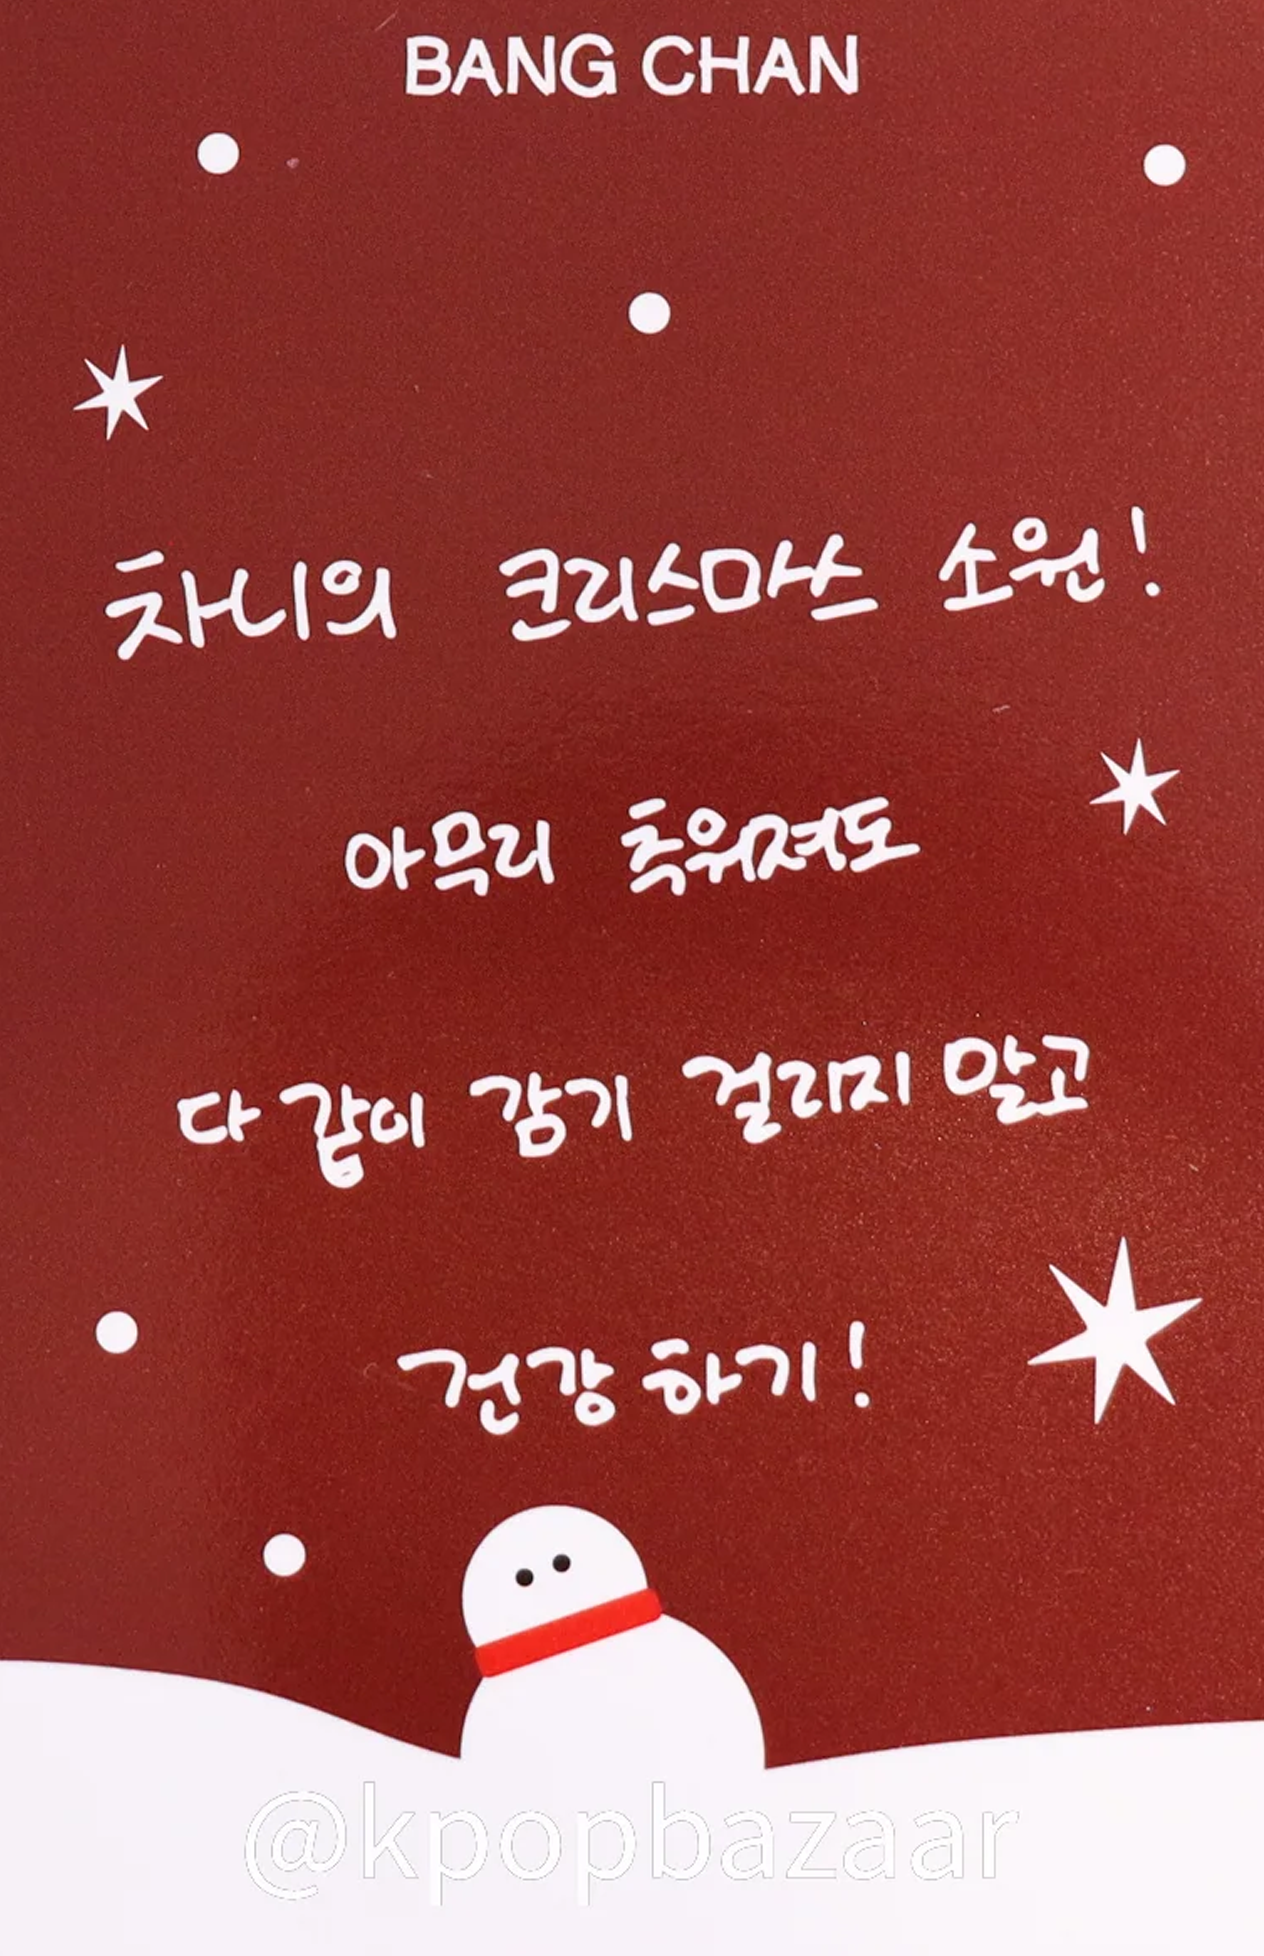 BANG CHAN
차니의 크리스마스 소원!
아무리 추워져도
다 같이 감기 걸리지 말고
건강하기!
@kpopbazaar